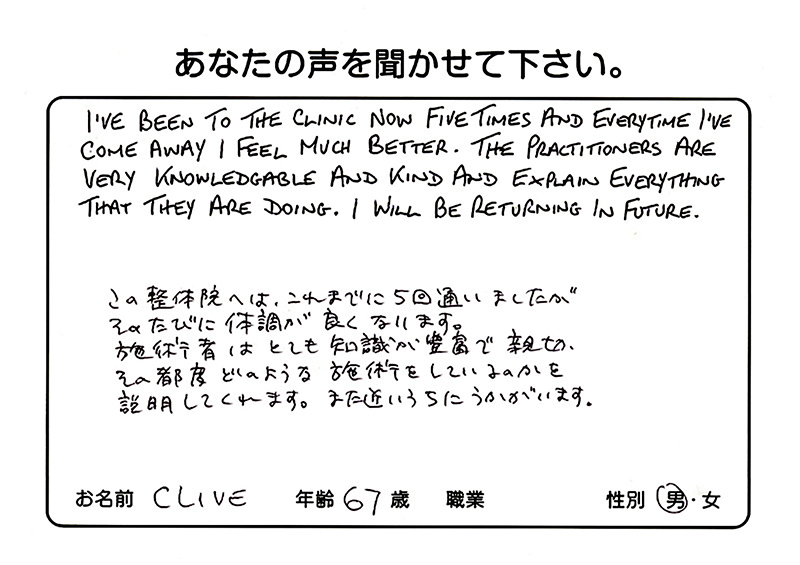 あなたの声を聞かせて下さい。
I'VE BEEN TO THE CLINIC NOW FIVE TIMES AND EVERYTIME I'VE
COME AWAY I FEEL MUCH BETTER. THE PRACTITIONERS ARE
VERY KNOWLEDGABLE AND KIND AND EXPLAIN EVERYTHING
THAT THEY ARE DOING. I WILL BE RETURNING IN FUTURE.
この整体院へは、これまでに5回通いましたが
そのたびに体調が良くなります。
施術者はとても知識が豊富で親切、
その都度どのような施術をしているのかを
説明してくれます。また近いうちにうかがいます。
お名前 CLIVE 年齢 67 歳 職業 性別 男・女